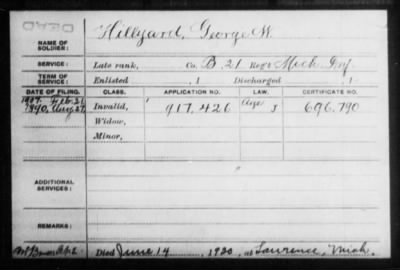 DEAD
NAME OF SOLDIER: Hillyard, George W.
SERVICE: Late rank, Co. B. 21 Reg't Mich. Inf.
TERM OF SERVICE: Enlisted , 1 Discharged , 1
DATE OF FILING. CLASS. APPLICATION NO. LAW. CERTIFICATE NO.
1907. Feb. 21
1890, Aug. 27 Invalid, 917.426 Age 696.790
Widow,
Minor,
ADDITIONAL SERVICES:
REMARKS:
Died June 14, 1920, at Lawrence, Mich.